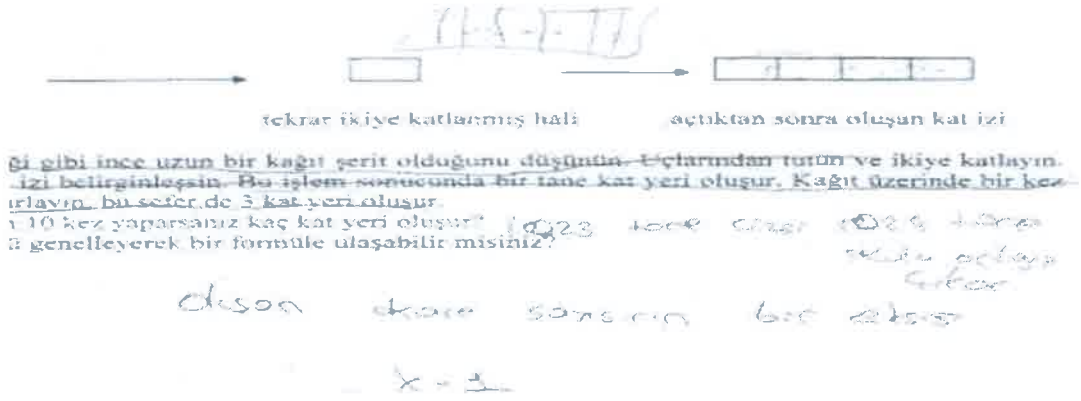 tekrar ikiye katlanmış hali açtıktan sonra oluşan kat izi
ği gibi ince uzun bir kağıt şerit olduğunu düşünün. Uçlarından tutun ve ikiye katlayın.
izi belirginleşsin. Bu işlem sonucunda bir tane kat yeri oluşur. Kağıt üzerinde bir kez
ırlayın, bu sefer de 3 kat yeri oluşur.
10 kez yaparsanız kaç kat yeri oluşur? 1023 tane 1023 tane
genelleyerek bir formüle ulaşabilir misiniz?
olsun kare sayının bir
x - 1